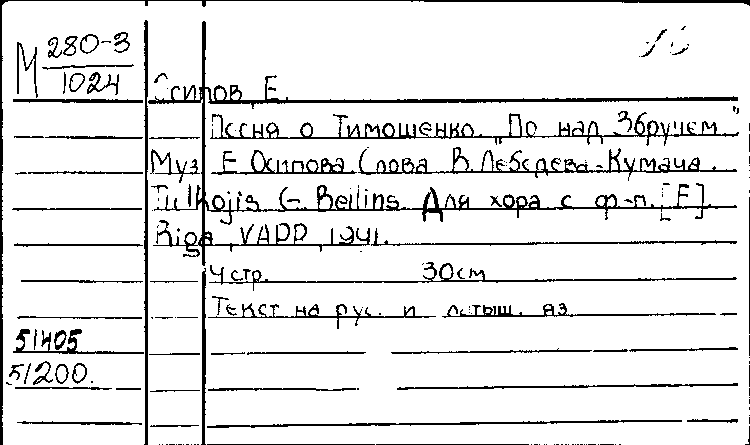 М 280-3
1024
Осипов, Е.
Песня о Тимошенко. „По над Збручем."
Муз. Е. Осипова. Слова В. Лебедева-Кумача.
Tulkojis G. Beilins. Для хора с ф-п. [F].
Riga, VAPP, 1941.
4 стр. 30см
Текст на рус. и латыш. яз.
51405
51200.